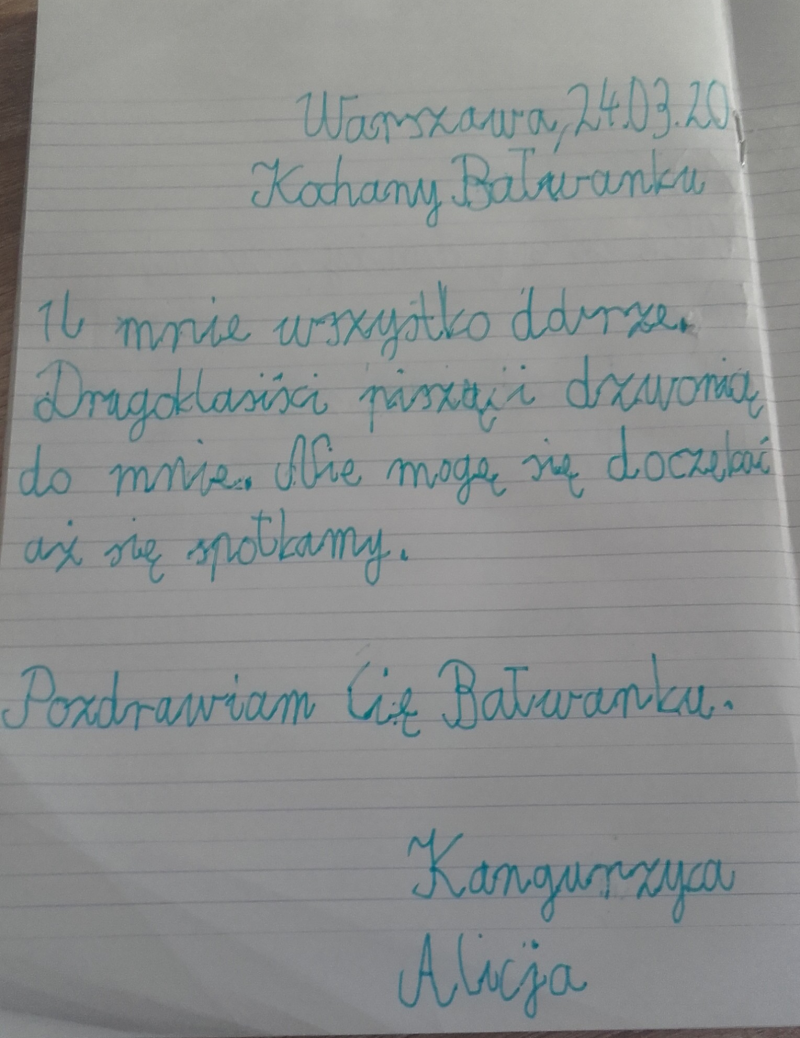 Warszawa, 24.03.20
Kochany Bałwanku
U mnie wszystko ddurze.
Drugoklasiści piszą i dzwonią
do mnie. Nie mogę się doczekać
aż się spotkamy.
Pozdrawiam Cię Bałwanku.
Kangurzyca
Alicja